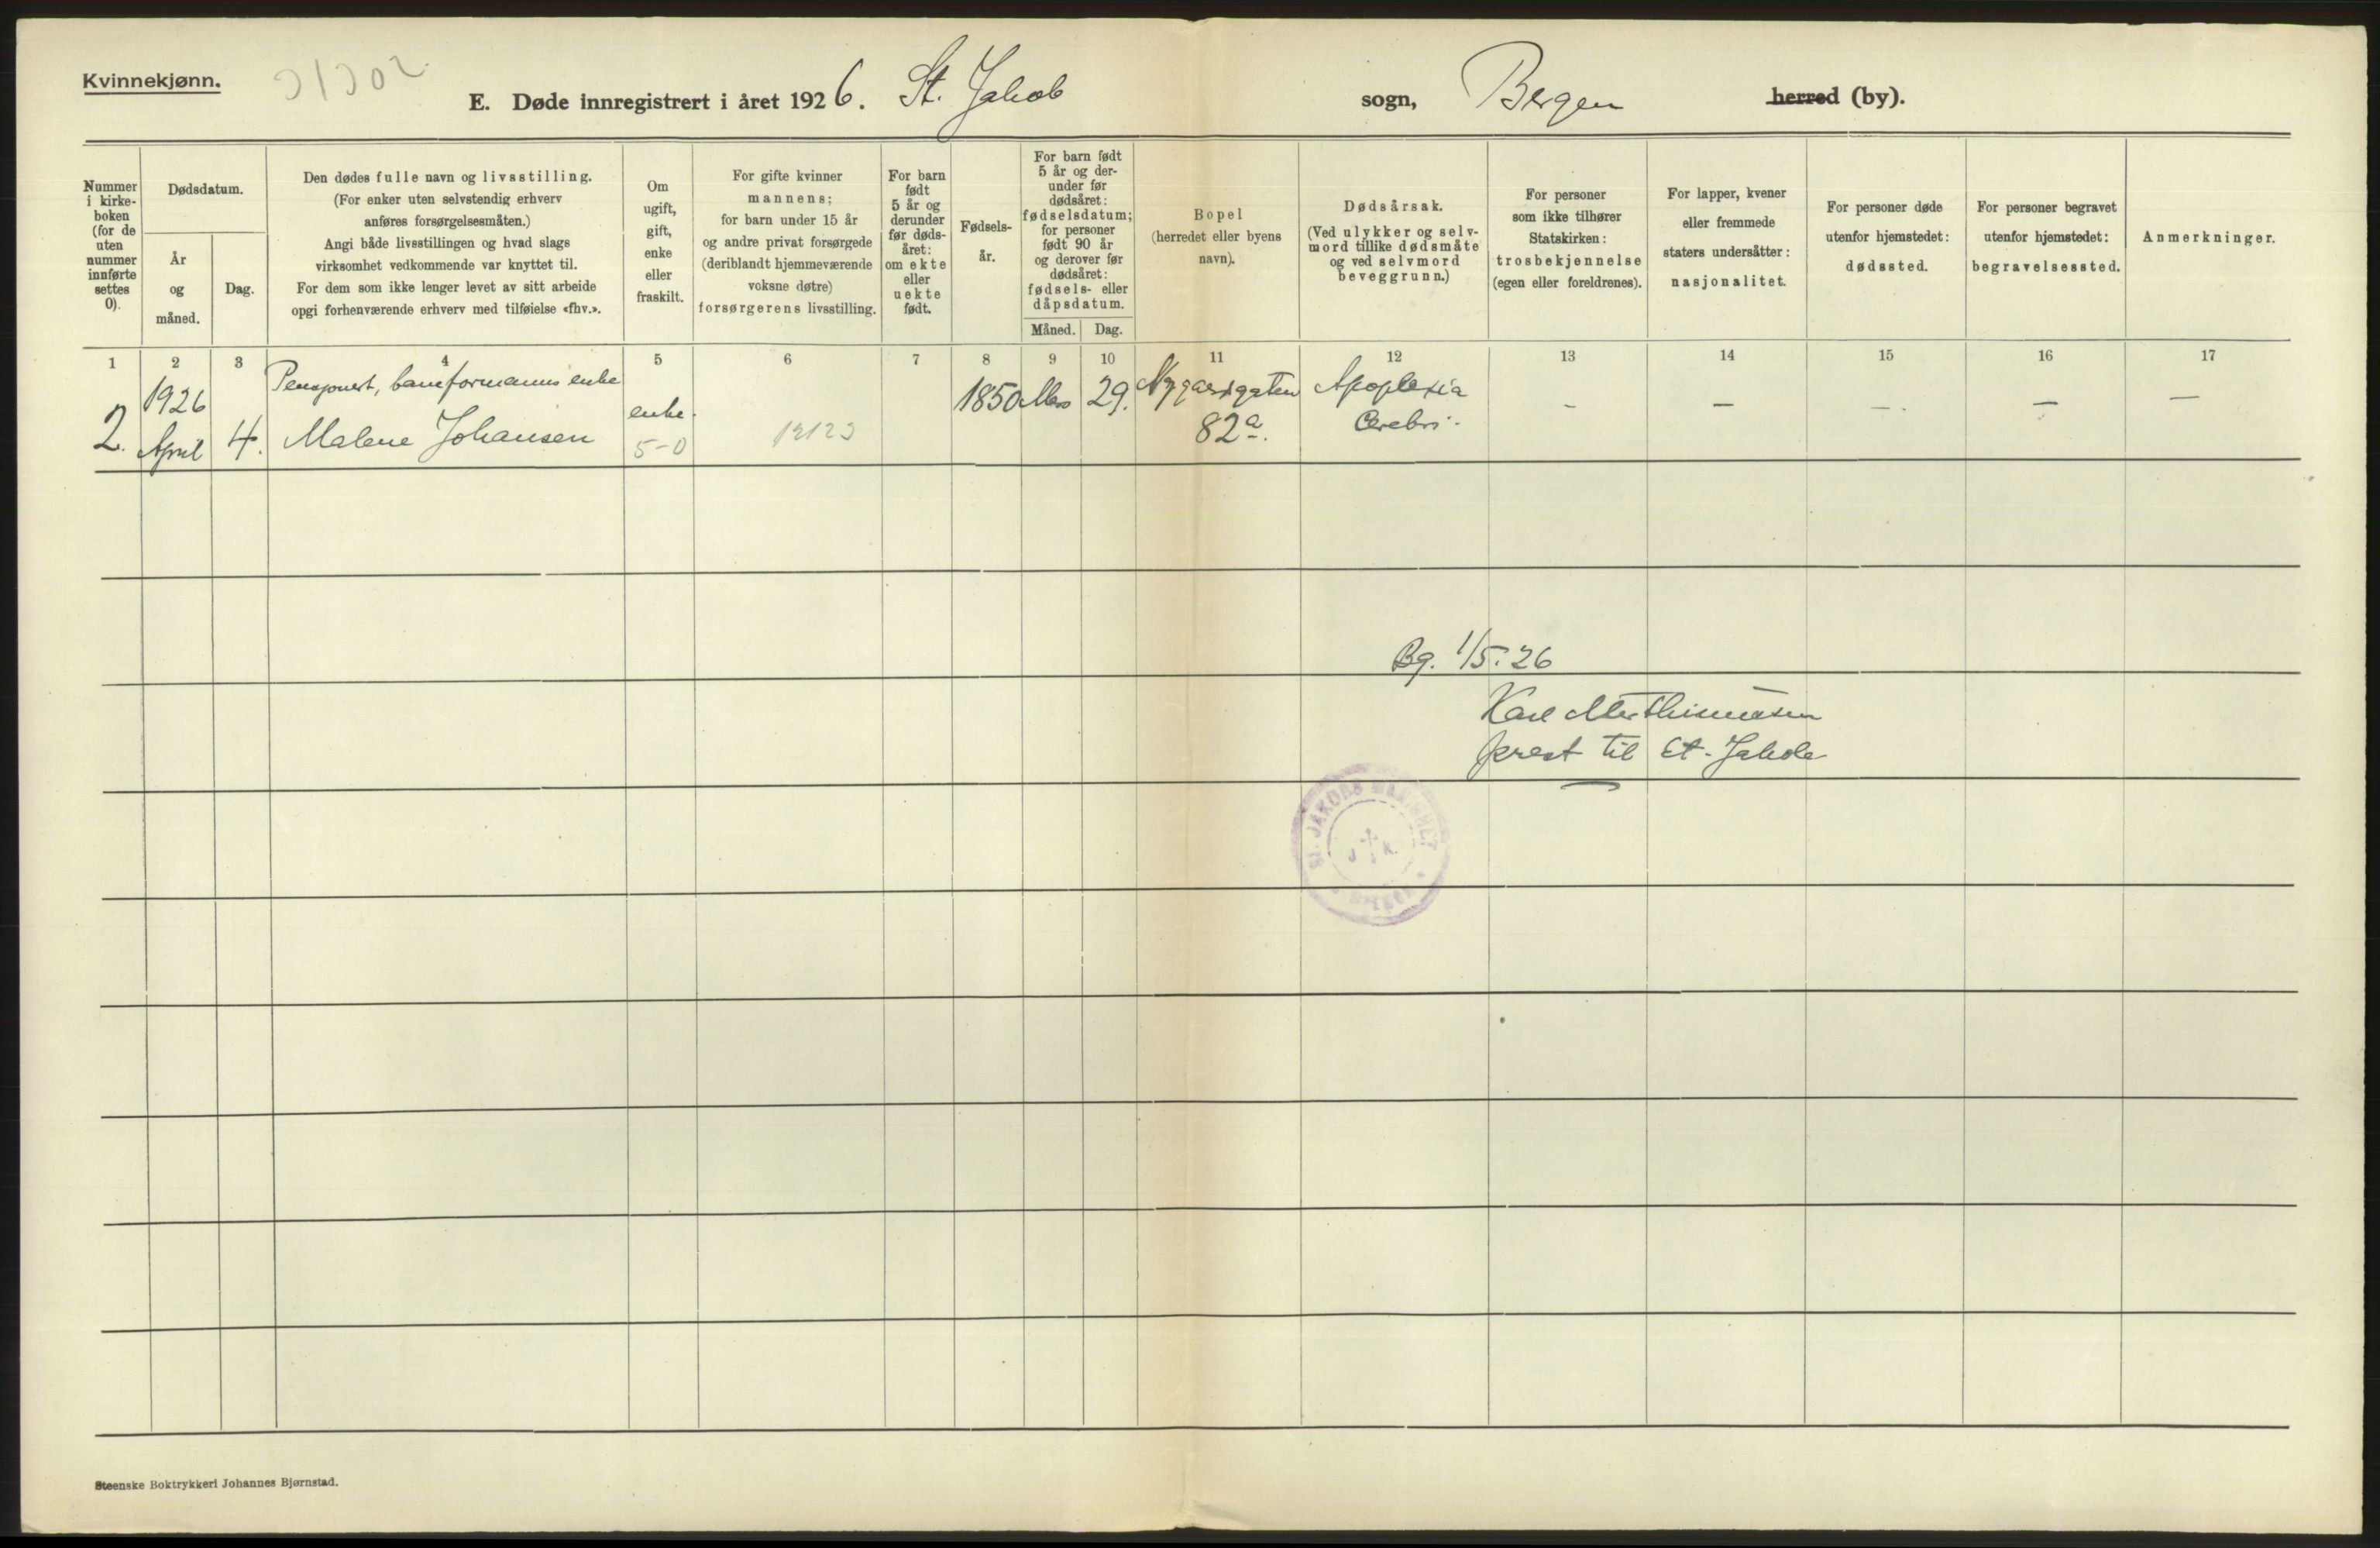 Kvinnekjønn.
E. Døde innregistrert i året 1926. St. Jakob sogn, Bergen herred (by).
Nummer i kirke-boken (for de uten nummer innførte settes 0).
Dødsdatum.
År og måned.
Dag.
Den dødes fulle navn og livsstilling.
(For enker uten selvstendig erhverv
anføres forsørgelsesmåten.)
Angi både livsstillingen og hvad slags
virksomhet vedkommende var knyttet til.
For dem som ikke lenger levet av sitt arbeide
opgi forhenværende erhverv med tilføielse «fhv.».
Om
ugift,
gift,
enke
eller
fraskilt.
For gifte kvinner
mannens;
for barn under 15 år
og andre privat forsørgede
(deriblandt hjemmeværende
voksne døtre)
forsørgerens livsstilling.
For barn
født
5 år og
derunder
før døds-
året:
om ekte
eller
uekte
født.
Fødsels-
år.
For barn født
5 år og der-
under før
dødsåret:
fødselsdatum;
for personer
født 90 år
og derover før
dødsåret:
fødsels- eller
dåpsdatum.
Måned. Dag.
Bopel
(herredet eller byens
navn).
Dødsårsak.
(Ved ulykker og selv-
mord tillike dødsmåte
og ved selvmord
beveggrunn.)
For personer
som ikke tilhører
Statskirken:
trosbekjennelse
(egen eller foreldrenes).
For lapper, kvener
eller fremmede
staters undersåtter:
nasjonalitet.
For personer døde
utenfor hjemstedet:
dødssted.
For personer begravet
utenfor hjemstedet:
begravelsessted.
Anmerkninger.
1 2 3 4 5 6 7 8 9 10 11 12 13 14 15 16 17
2.
1926
April
4.
Pensjonert, baneformanns enke
Malene Johansen
enke.
5-0
12123
1850
29.
Nygaardsgaten
82a.
Apoplexia
Cerebri.
– – – – –
Bg. 1/5. 26
Karl
prest til St. Jakob
St. JAKOBS MENIGHET
BERGEN
Steenske Boktrykkeri Johannes Bjørnstad.